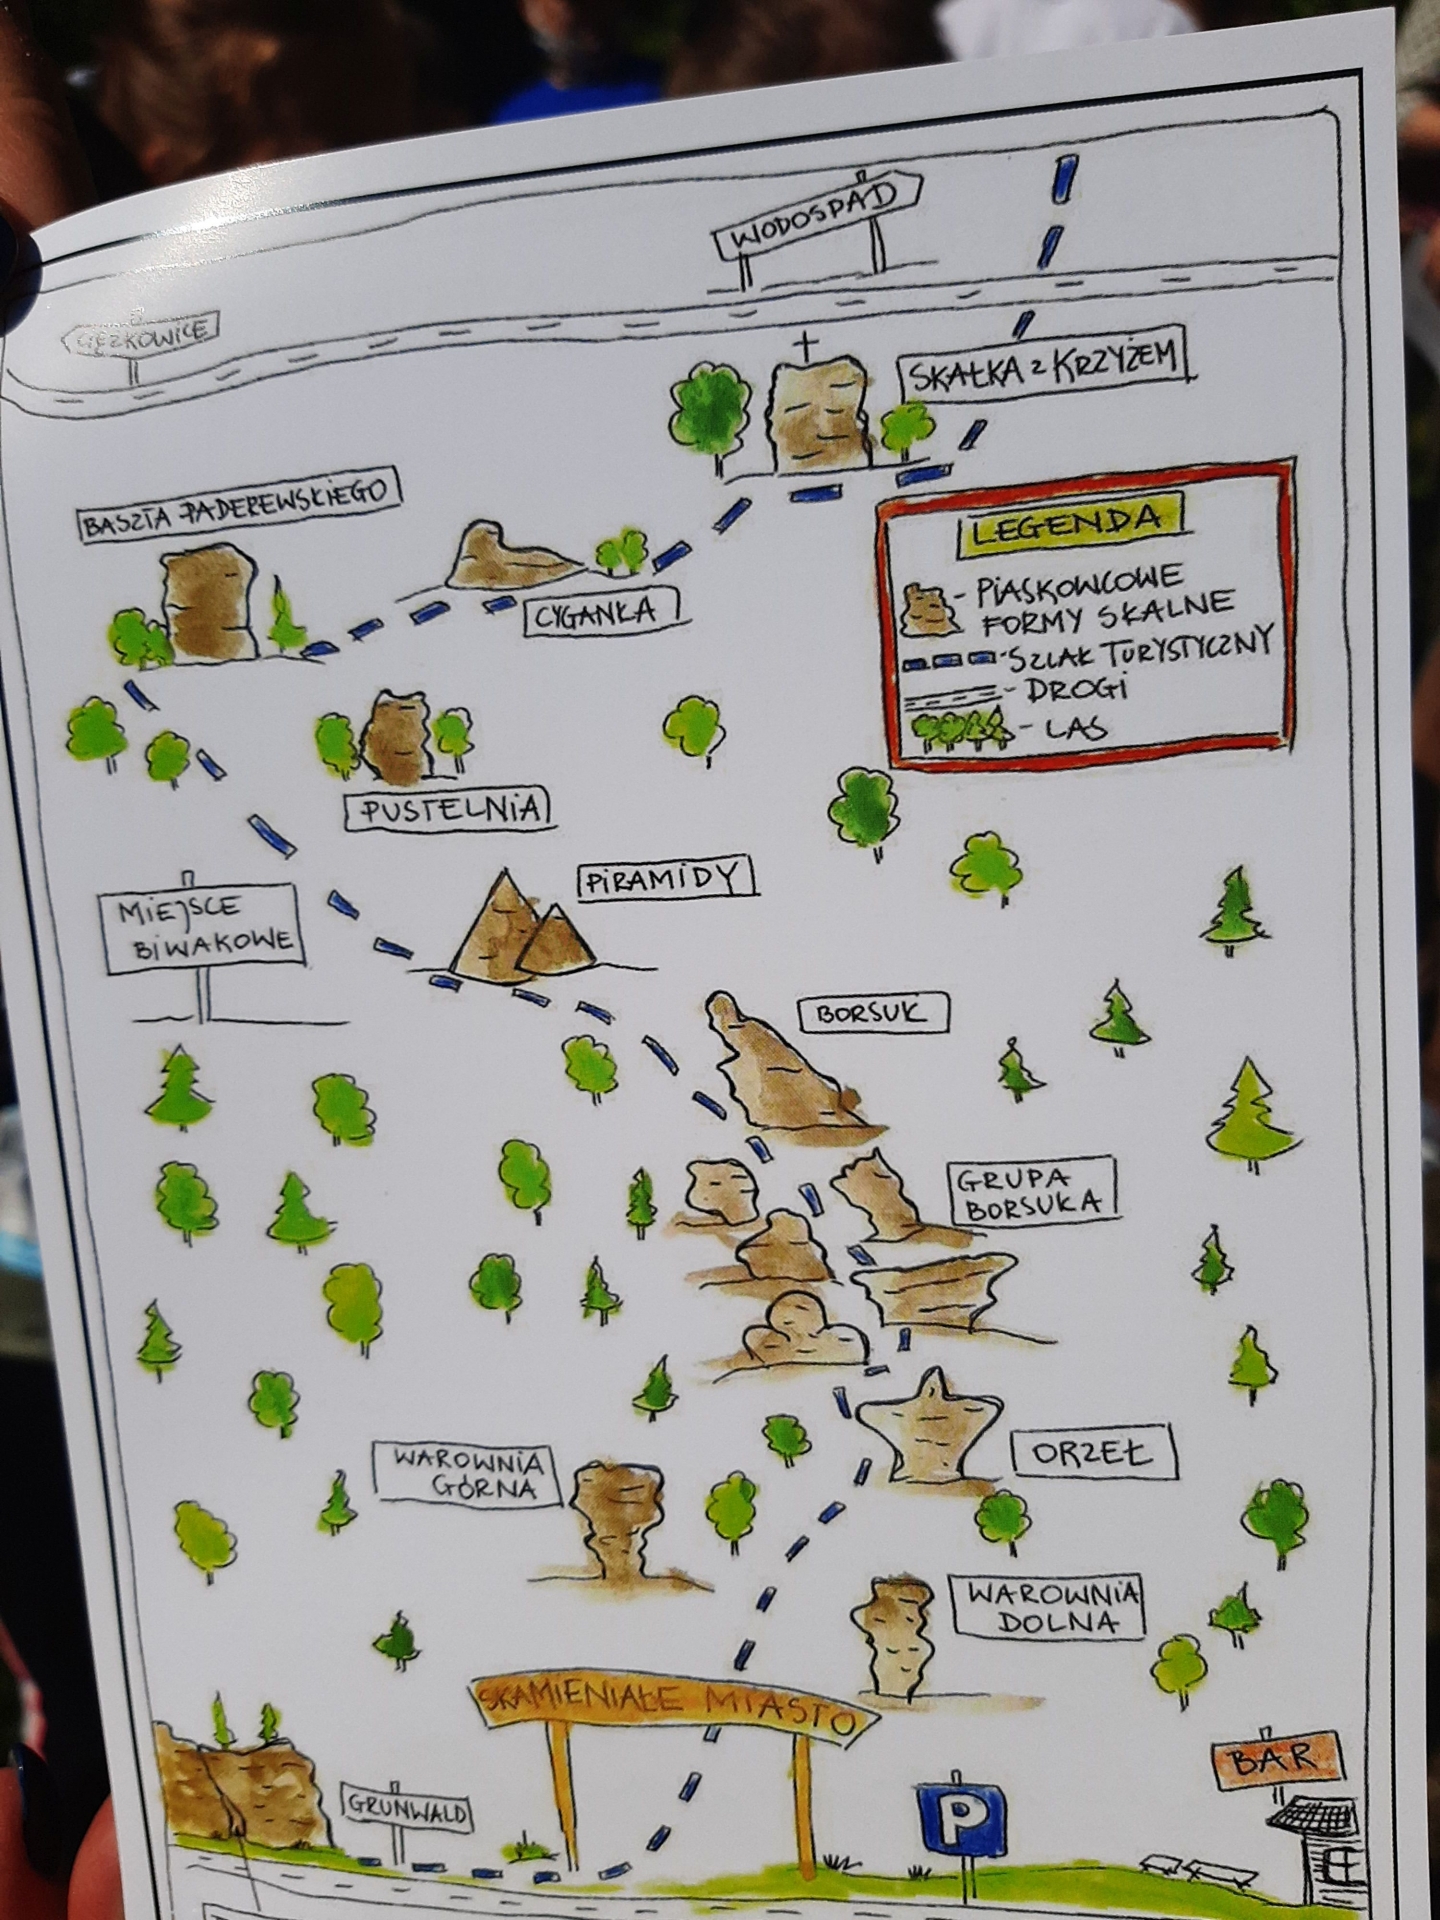 WODOSPAD
CIĘŻKOWICE
SKAŁKA z KRZYŻEM
BASZTA PADEREWSKIEGO
LEGENDA
- PIASKOWCOWE
FORMY SKALNE
- SZLAK TURYSTYCZNY
- DROGI
- LAS
CYGANKA
PUSTELNIA
PIRAMIDY
MIEJSCE
BIWAKOWE
BORSUK
GRUPA
BORSUKA
ORZEŁ
WAROWNIA
GÓRNA
WAROWNIA
DOLNA
SKAMIENIAŁE MIASTO
BAR
GRUNWALD
P